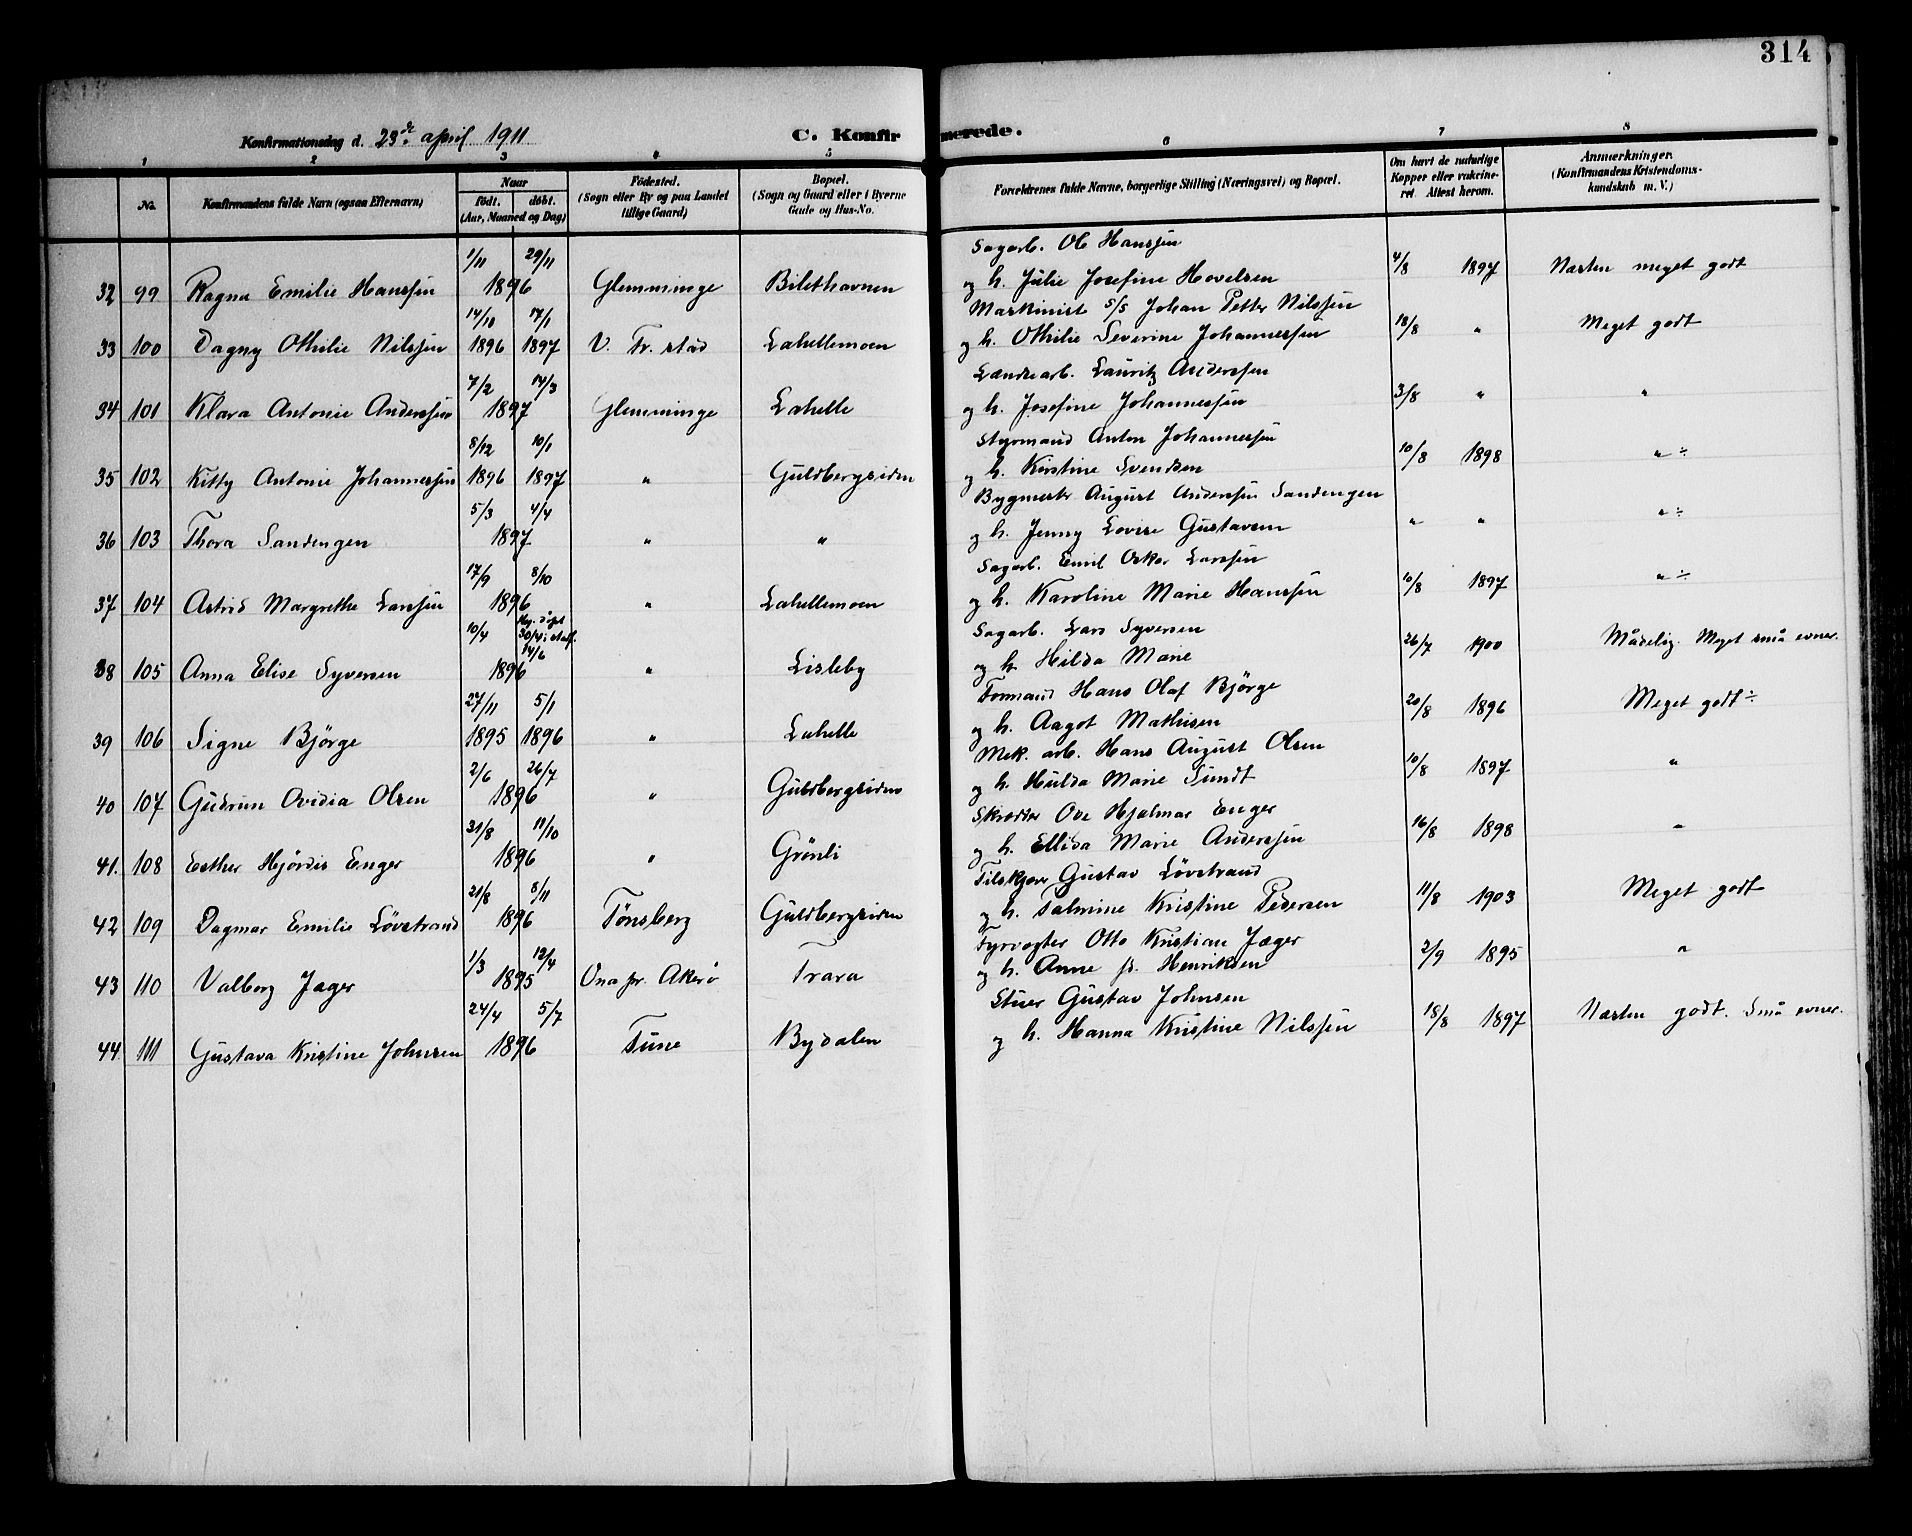 314
Konfirmationsdag d. 23de april 1911.
C. Konfirmerede.
1 2 3 4 5 6 7 8
No.
Konfirmandens fulde Navn (ogsaa Efternavn)
Naar
født. døbt.
(Aar, Maaned og Dag)
Fødested.
(Sogn eller By og paa Landet
tillige Gaard)
Bopæl.
(Sogn og Gaard eller i Byerne
Gade og Hus-No.
Forældrenes fulde Navne, borgerlige Stilling (Næringsvei) og Bopæl.
Om havt de naturlige
Kopper eller vakcine-
ret. Attest herom.
Anmærkninger.
(Konfirmandens Kristendoms-
kundskab m. V.)
1/11 29/11 Sagarb. Ole Hanssen
32 99 Ragna Emilie Hanssen 1896 Glemminge Bilethavnen og h. Julie Josefine Hovelsen 4/8 1897 Næsten meget godt
14/10 17/1 Maskinist s/s Johan Petter Nilssen
33 100 Dagny Othilie Nilssen 1896 1897 V. Fr.stad Lahellemoen og h. Othilie Severine Johannessen 18/8 " Meget godt
7/2 14/3 Landsearb. Lauritz Anderssen
34 101 Klara Antonie Anderssen 1897 Glemminge Lahelle og h. Josefine Johannessen 3/8 " "
8/12 10/1 Styrmand Anton Johannessen
35 102 Kitty Antonie Johannessen 1896 1897 " Guldbergsiden og h. Kirstine Svendsen 10/8 1898 " ÷
5/3 4/4 Bygmester August Anderssen Sandengen
36 103 Thora Sandengen 1897 " " og h. Jenny Lovise Gustavsen " " " ÷
17/9 8/10 Sagarb. Emil Oskar Larssen
37 104 Astrid Margrethe Larssen 1896 " Lahellemoen og h. Karoline Marie Hanssen 10/8 1897 " ÷
10/4 30/4 14/6 Sagarb. Lars Syversen
38 105 Anna Elise Syversen 1896 " Lisleby og h. Hilda Marie 26/7 1900 Mådelig. Meget små evner.
27/11 5/1 Formand Hans Olaf Bjørge
39 106 Signe Bjørge 1895 1896 " Lahelle og h. Aagot Mathisen 20/8 1896 Meget godt ÷
2/6 26/7 Mek. arb. Hans August Olsen
40 107 Gudrun Ovidia Olsen 1896 " Guldbergsiden og h. Hulda Marie Sundt 10/8 1897 "
31/8 11/10 Skrædder Ove Hjalmar Enger
41. 108 Esther Hjørdis Enger 1896 " Grønli og h. Ellida Marie Anderssen 16/8 1898 "
21/8 8/11 Gustav Løvstrand
42 109 Dagmar Emilie Løvstrand 1896 Tønsberg Guldbergsiden og h. Palmine Kristine Pedersen 11/8 1903 Meget godt
1/3 12/4 Fyrvogter Otto Kristian Jæger
43 110 Valborg Jæger 1895 Ona pr. Akerø Trara og h. Anne f. Henriksen 2/9 1895 "
24/4 5/7 Stuer Gustav Johnsen
44 111 Gustava Kristine Johnsen 1896 Tune Bydalen og h. Hanna Kristine Nilssen 18/8 1897 Næsten godt. Små evner.